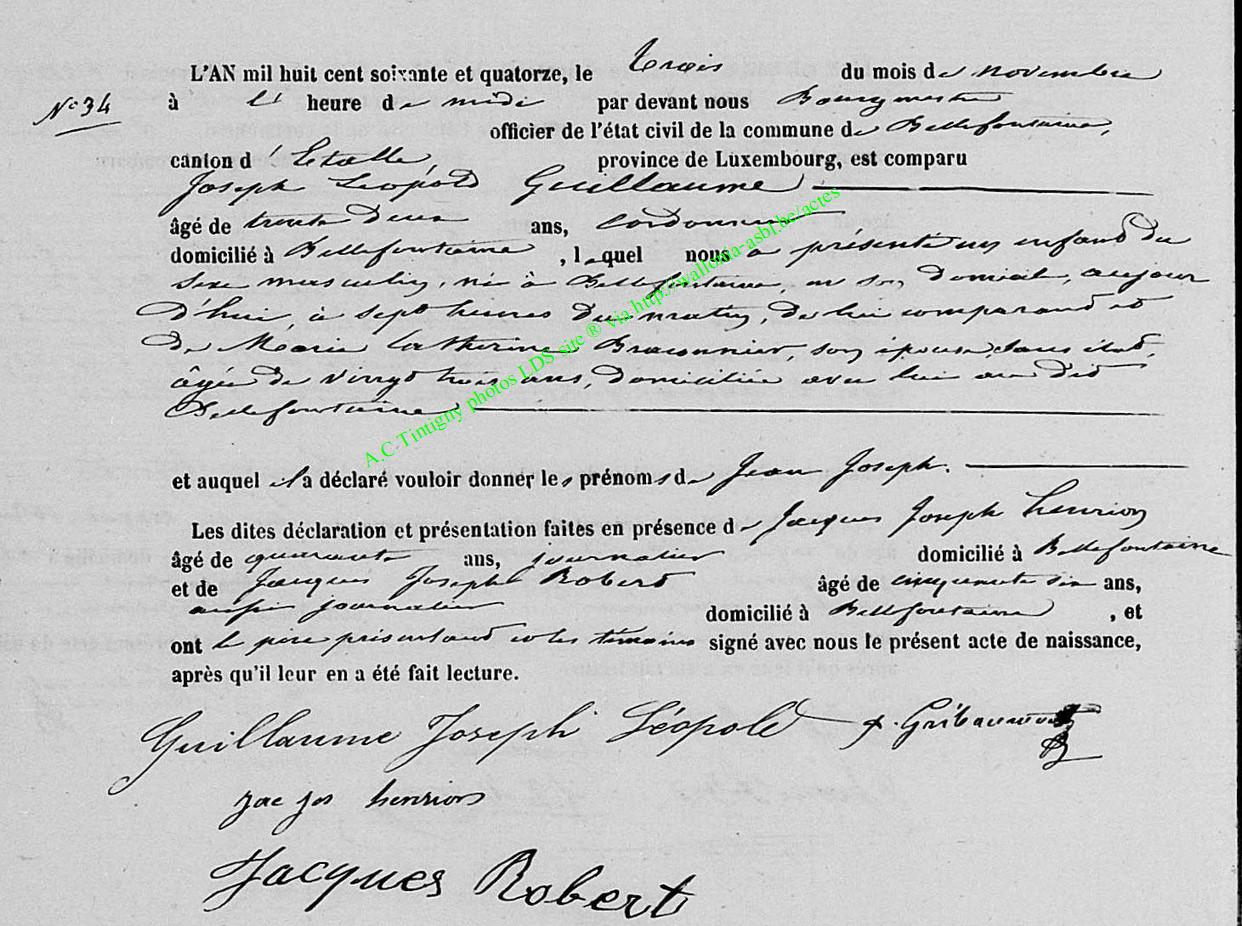 L'AN mil huit cent soixante et quatorze, le trois du mois de novembre
N° 34
à l' heure de midi par devant nous Bourgmestre
officier de l'état civil de la commune de Bellefontaine,
canton d'Etalle, province de Luxembourg, est comparu
Joseph Léopold Guillaume
âgé de trente deux ans, cordonnier
domicilié à Bellefontaine, lequel nous a présenté un enfant du
sexe masculin, né à Bellefontaine, en son domicile, aujour
d'hui, à sept heures du matin, de lui comparant et
de Marie Catherine Braconnier, son épouse, sans état,
âgée de vingt trois ans, domiciliée avec lui au dit
Bellefontaine
et auquel il a déclaré vouloir donner les prénoms de Jean Joseph.
Les dites déclaration et présentation faites en présence de Jacques Joseph Henrion
âgé de quarante ans, journalier domicilié à Bellefontaine
et de Jacques Joseph Robert âgé de cinquante six ans,
aussi journalier domicilié à Bellefontaine, et
ont le père présentant et les témoins signé avec nous le présent acte de naissance,
après qu'il leur en a été fait lecture.
Guillaume Joseph Léopold
jac jos henrion
Jacques Robert
A.C-Tintigny photos LDS site ® via http://wallonia-asbl.be/actes